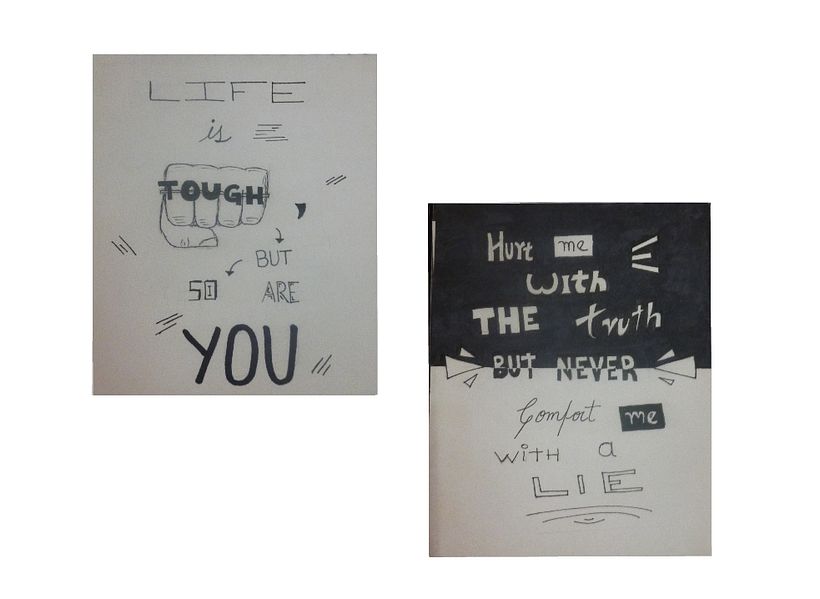 LIFE
is
TOUGH,
BUT
SO ARE
YOU
Hurt me
with
THE truth
BUT NEVER
Comfort me
WiTH a
LIE